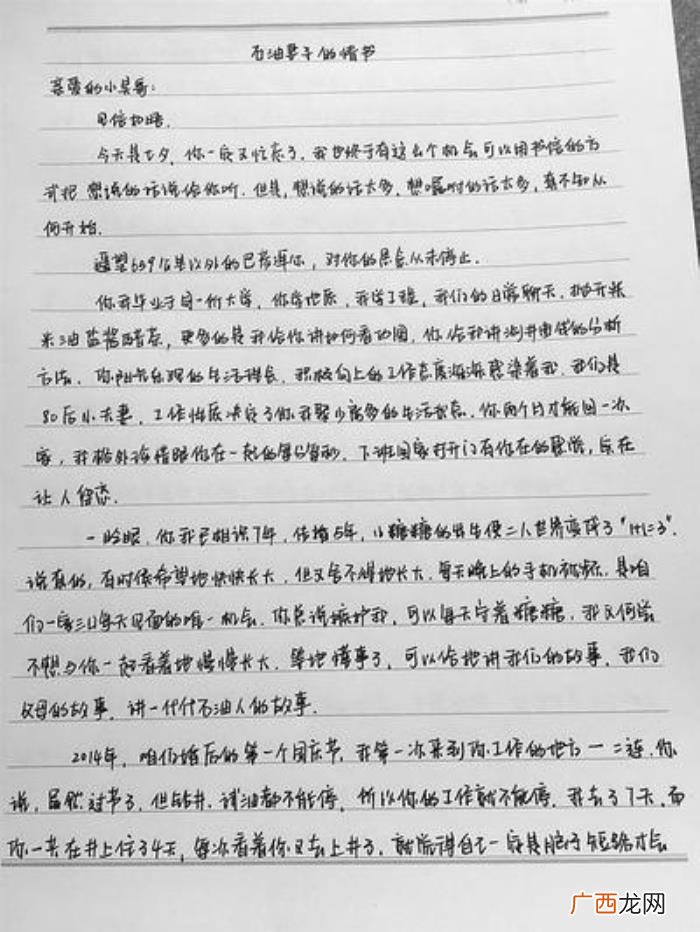 石油妻子的情书
亲爱的小吴哥:
见信如晤.
今天是七夕，你一定又忙忘了，我也终于有这么个机会可以用书信的方
式把想说的话说给你听.但是,想说的话太多,想嘱咐的话太多,真不知从
何开始.
遥望659公里以外的巴彦淖尔，对你的思念从未停止.
你我毕业于同一所大学，你学地质，我学工程，我们的日常聊天，抛开柴
米油盐酱醋茶，更多的是我给你讲如何看的图，你给我讲测井曲线的分析
方法.你阳光乐观的生活理念，积极向上的工作态度深深感染着我.我们是
80后小夫妻，工作性质决定了你我聚少离多的生活状态.你两个月才能回一次
家，我格外珍惜跟你在一起的每分每秒.下班回家打开门有你在的感觉,实在
让人留恋.
一晗眼，你我已相识7年，结婚5年，小糖糖的出生使二人世界变成了"1+1=3".
说真的,有时候希望她快快长大，但又舍不得她长大.每天晚上的手机视频，是咱
们一家三口每天见面的唯一机会.你总说嫉妒我，可以每天守着糖糖，我又何尝
不想与你一起看着她慢慢长大.等她懂事了，可以给她讲我们的故事，我们
父母的故事，讲一代代石油人的故事.
2014年，咱们婚后的第一个国庆节，我第一次来到你工作的地方一二连.你
说，虽然过节了，但钻井、试油都不能停，所以你的工作就不能停.我去了7天，而
你一共在井上住了4天，每次看着你又去上井了，就觉得自己一定是脑子短路才会
广西龙网